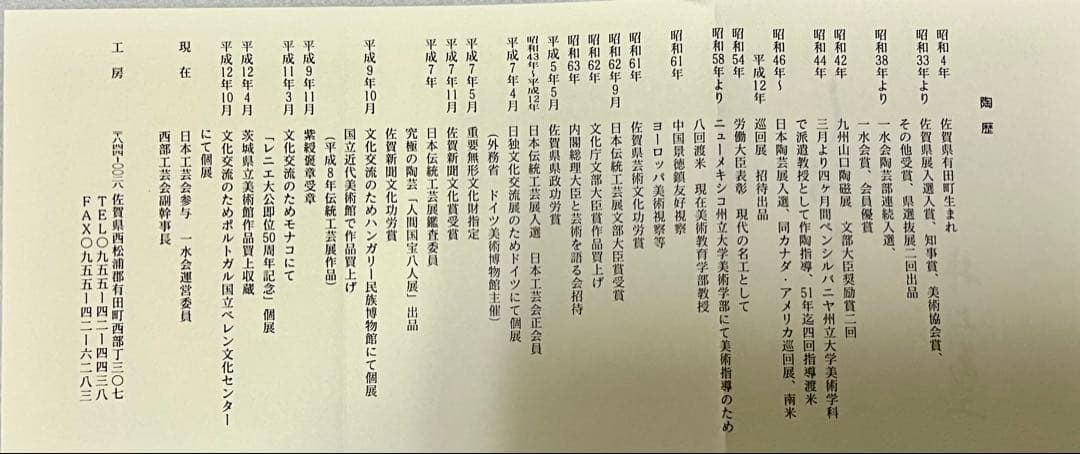 陶歴
昭和4年 佐賀県有田町生まれ
昭和33年より 佐賀県展入選入賞、知事賞、美術協会賞、
その他受賞、県選抜展二回出品
昭和38年より 一水会陶芸部連続入選、
一水会賞、会員優賞
昭和42年 九州山口陶磁展 文部大臣奨励賞二回
昭和44年 三月より四ヶ月間ペンシルバニヤ州立大学美術学科
で派遣教授として作陶指導、51年迄四回指導渡米
昭和46年〜 日本陶芸展入選、同カナダ・アメリカ巡回展、南米
平成12年 巡回展 招待出品
昭和54年 労働大臣表彰 現代の名工として
昭和58年より ニューメキシコ州立大学美術学部にて美術指導のため
八回渡米 現在美術教育学部教授
昭和61年 中国景徳鎮友好視察
ヨーロッパ美術視察等
昭和61年 佐賀県芸術文化功労賞
昭和62年9月 日本伝統工芸展文部大臣賞受賞
昭和62年 文化庁文部大臣賞作品買上げ
昭和63年 内閣総理大臣と芸術を語る会招待
平成5年5月 佐賀県県政功労賞
昭和43年〜平成12年 日本伝統工芸展入選 日本工芸会正会員
平成7年4月 日独文化交流展のためドイツにて個展
(外務省 ドイツ美術博物館主催)
平成7年5月 重要無形文化財指定
平成7年11月 佐賀新聞文化賞受賞
平成7年 日本伝統工芸展鑑査委員
究極の陶芸「人間国宝八人展」出品
佐賀新聞文化功労賞
平成9年10月 文化交流のためハンガリー民族博物館にて個展
国立近代美術館で作品買上げ
(平成8年伝統工芸展作品)
平成9年11月 紫綬褒章受章
平成11年3月 文化交流のためモナコにて
「レニエ大公即位50周年記念」個展
平成12年4月 茨城県立美術館作品買上収蔵
平成12年10月 文化交流のためポルトガル国立ベレン文化センター
にて個展
現在 日本工芸会参与 一水会運営委員
西部工芸会副幹事長
工房 〒八四四-〇〇二八 佐賀県西松浦郡有田町西部丁三〇七
TEL〇九五五-四二-四四三八
FAX〇九五五-四二-六二八三